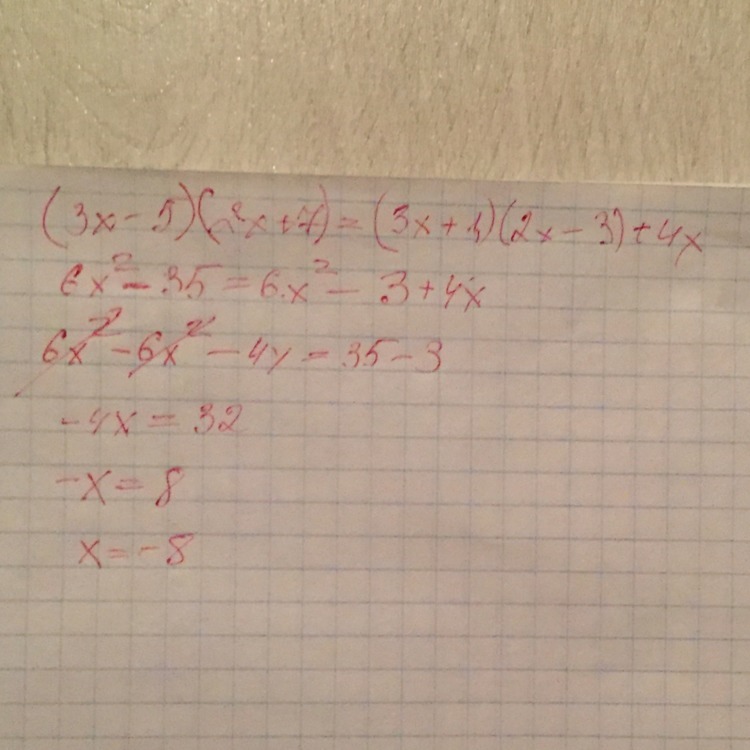 (3x-5)(2x+7)=(3x+1)(2x-3)+4x
6x²-35=6x²-3+4x
6x²-6x²-4x=35-3
-4x=32
-x=8
x=-8